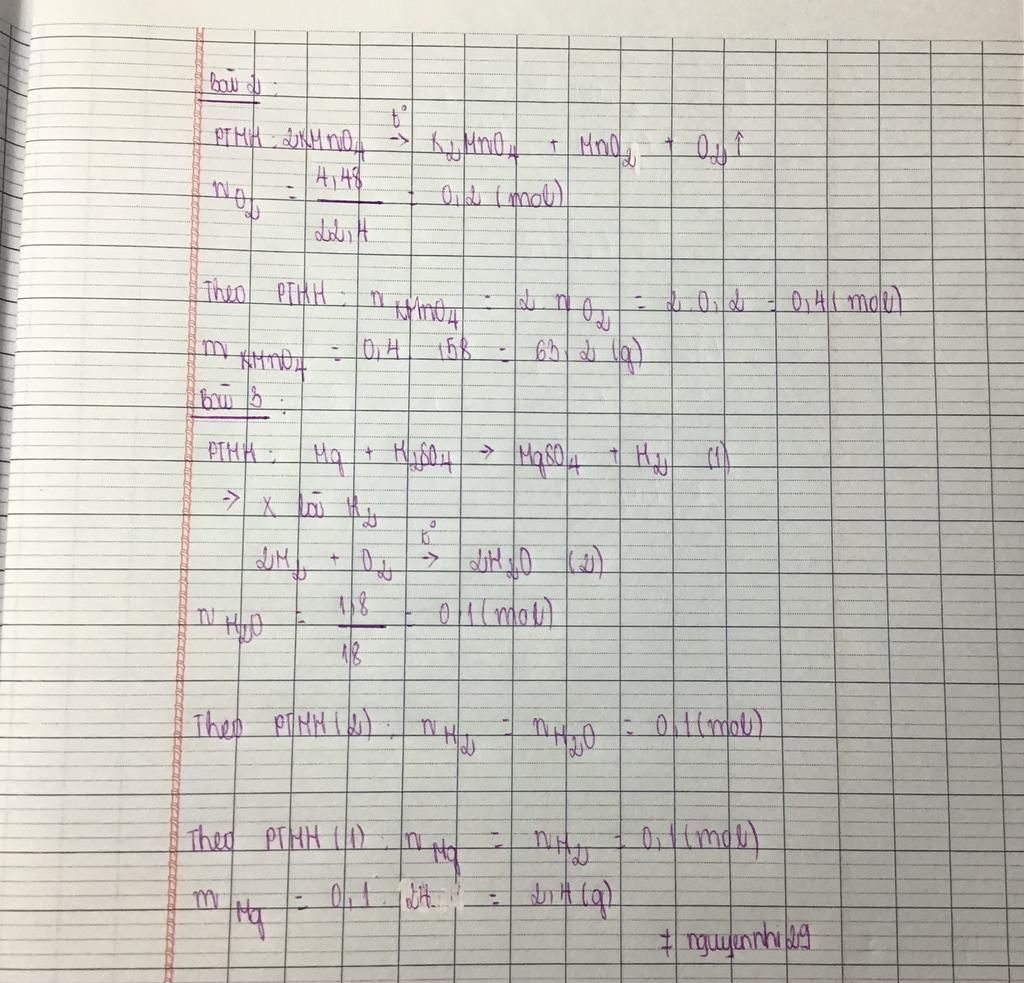 Bài 2:
PTHH: 2KMnO₄ t°→ K₂MnO₄ + MnO₂ + O₂↑
n O₂ = 4,48 / 22,4 = 0,2 (mol)
Theo PTHH: n KMnO₄ = 2 n O₂ = 2 . 0,2 = 0,4 (mol)
m KMnO₄ = 0,4 . 158 = 63,2 (g)
Bài 3:
PTHH: Mg + H₂SO₄ → MgSO₄ + H₂ (1)
→ X là H₂
2H₂ + O₂ t°→ 2H₂O (2)
n H₂O = 1,8 / 18 = 0,1 (mol)
Theo PTHH (2): n H₂ = n H₂O = 0,1 (mol)
Theo PTHH (1): n Mg = n H₂ = 0,1 (mol)
m Mg = 0,1 . 24 = 2,4 (g)
# nguyennhi29